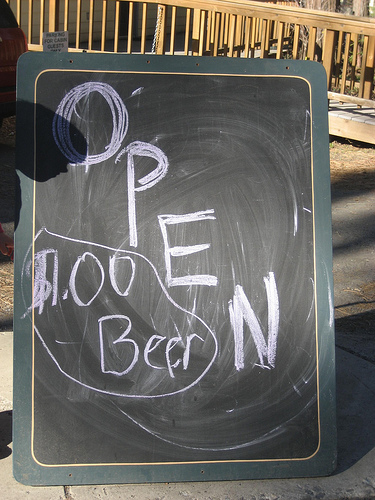 OPEN
$1.00
Beer